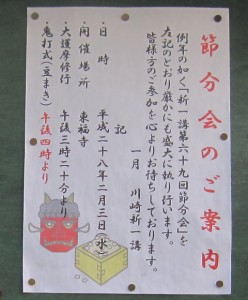 節分会のご案内
例年の如く「新一講第六十九回節分会」を
左記のとおり厳かにも盛大に執り行います。
皆様方のご参加を心よりお待ちしております。
一月 川崎新一講
記
・日時 平成二十八年二月三日(水)
・開催場所 東福寺
・大護摩修行 午後三時二十分より
・鬼打式(豆まき) 午後四時より